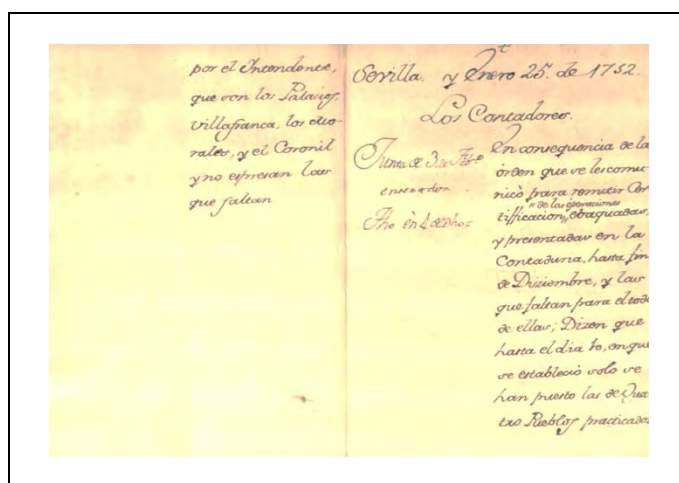 por el Intendente,
que son los Palacios,
Villafranca, los Mo-
rales, y el Coronil
y no expresan las
que faltan
Sevilla. y Enero 25. de 1752.
Los Contadores.
Junta de 3. de
enterador
fho en 4 de dho
En consequencia de la
orden que se les comu-
nicò para remitir Cer-
tifficacion de las operaciones evaquadas,
y presentadas en la
Contaduria, hasta fin
de Diziembre, y las
que faltan para el todo
de ellas; Dizen que
hasta el dia 10, en que
se estableciò solo se
han puesto las de Qua-
tro Pueblos practicados